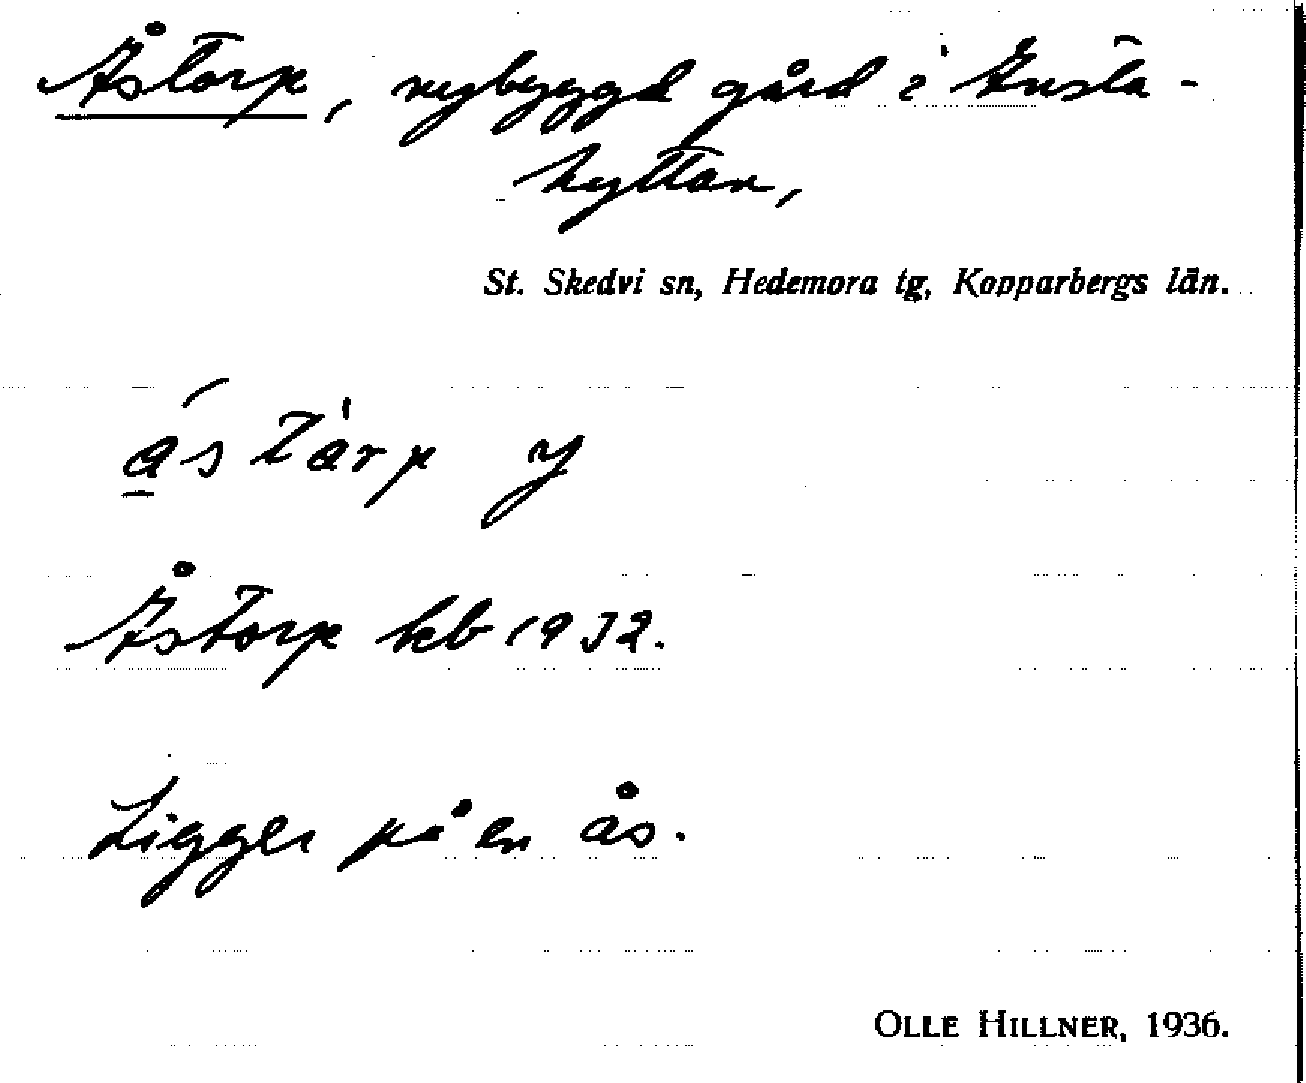 Åstorp, nybyggd gård i Knusta-
hyttan,
St. Skedvi sn, Hedemora tg, Kopparbergs län.
ás tàrp y
Åstorp kb 1932.
Ligger på en ås.
OLLE HILLNER, 1936.